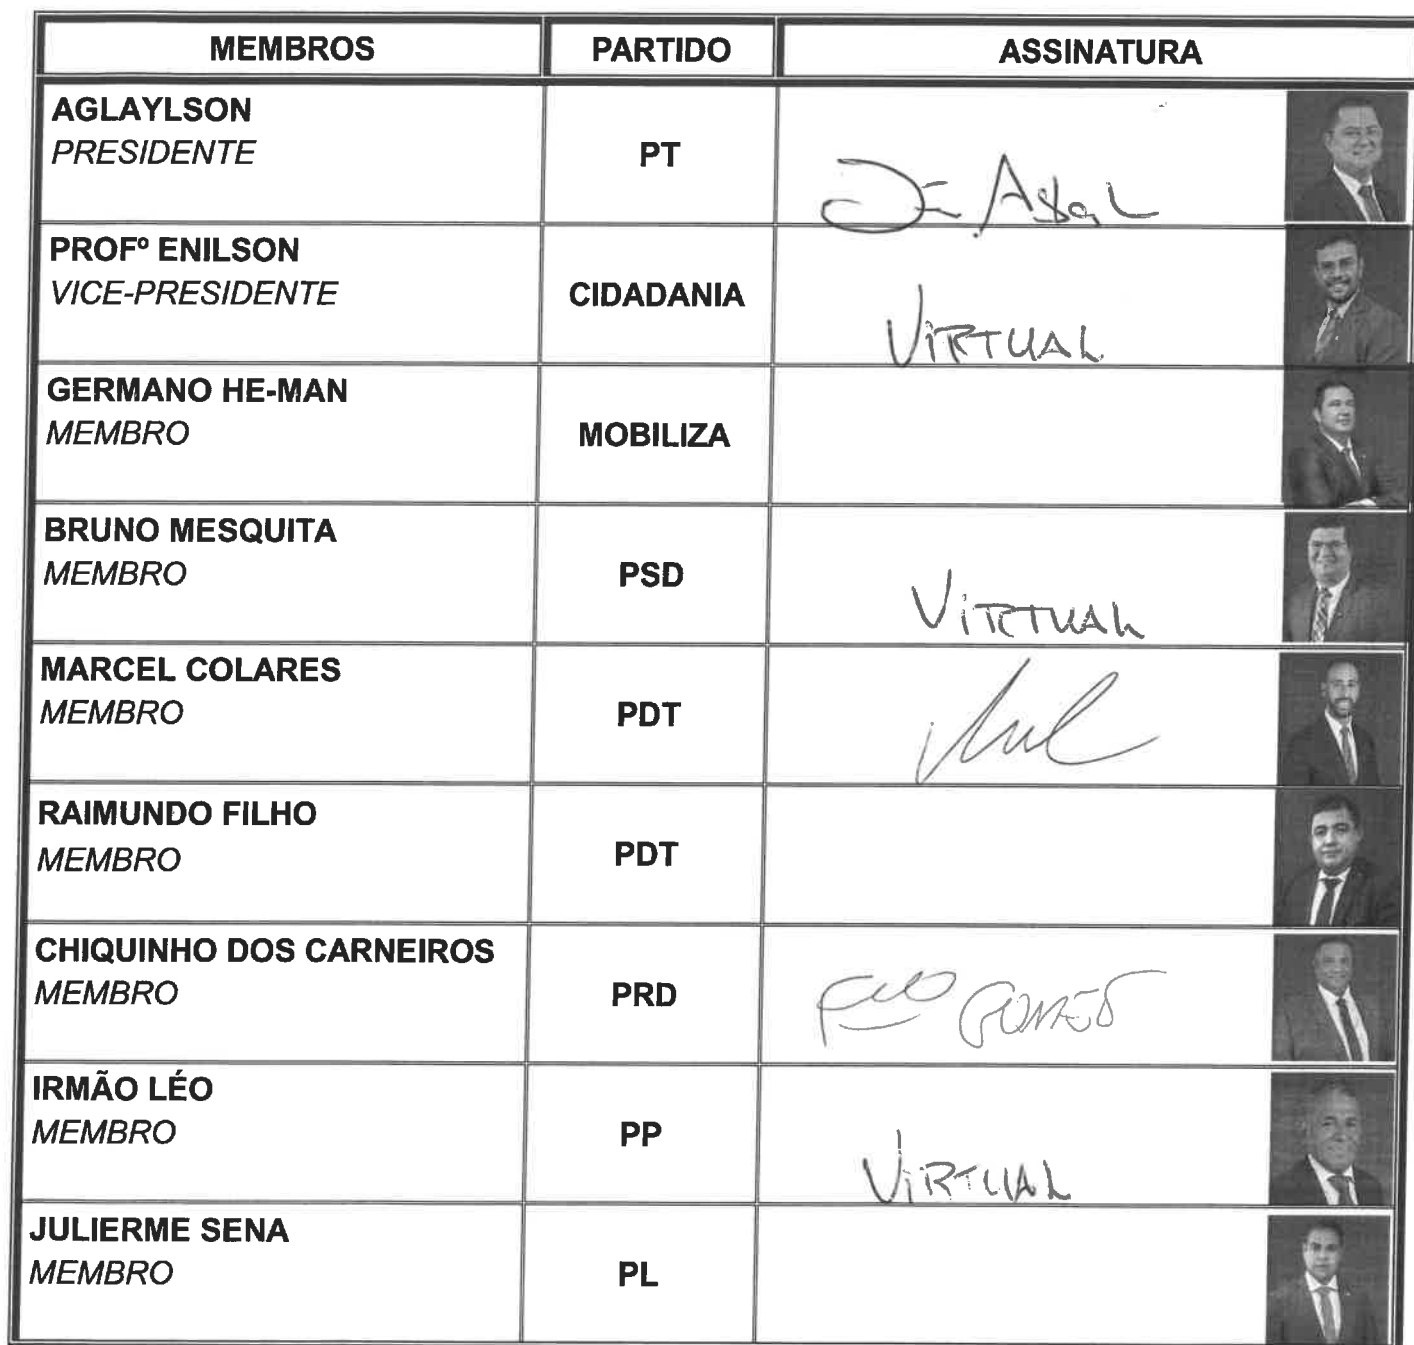 MEMBROS PARTIDO ASSINATURA
AGLAYLSON
PRESIDENTE
PT
PROFº ENILSON
VICE-PRESIDENTE
CIDADANIA
VIRTUAL
GERMANO HE-MAN
MEMBRO
MOBILIZA
BRUNO MESQUITA
MEMBRO
PSD
VIRTUAL
MARCEL COLARES
MEMBRO
PDT
RAIMUNDO FILHO
MEMBRO
PDT
CHIQUINHO DOS CARNEIROS
MEMBRO
PRD
GOMES
IRMÃO LÉO
MEMBRO
PP
VIRTUAL
JULIERME SENA
MEMBRO
PL